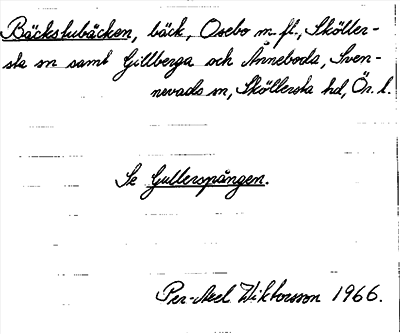 Bäckstubäcken, bäck, Osebo m.fl., Sköller-
sta sn samt Gillberga och Ånneboda, Sven-
nevads sn, Sköllersta hd, Ör. l.
Se Gullerspången.
Per-Axel Wiktorsson 1966.